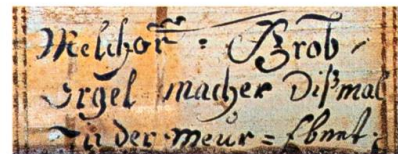 Melchor = Grob /
Orgel macher Dißmal
Zu der Meur = Ebnet.